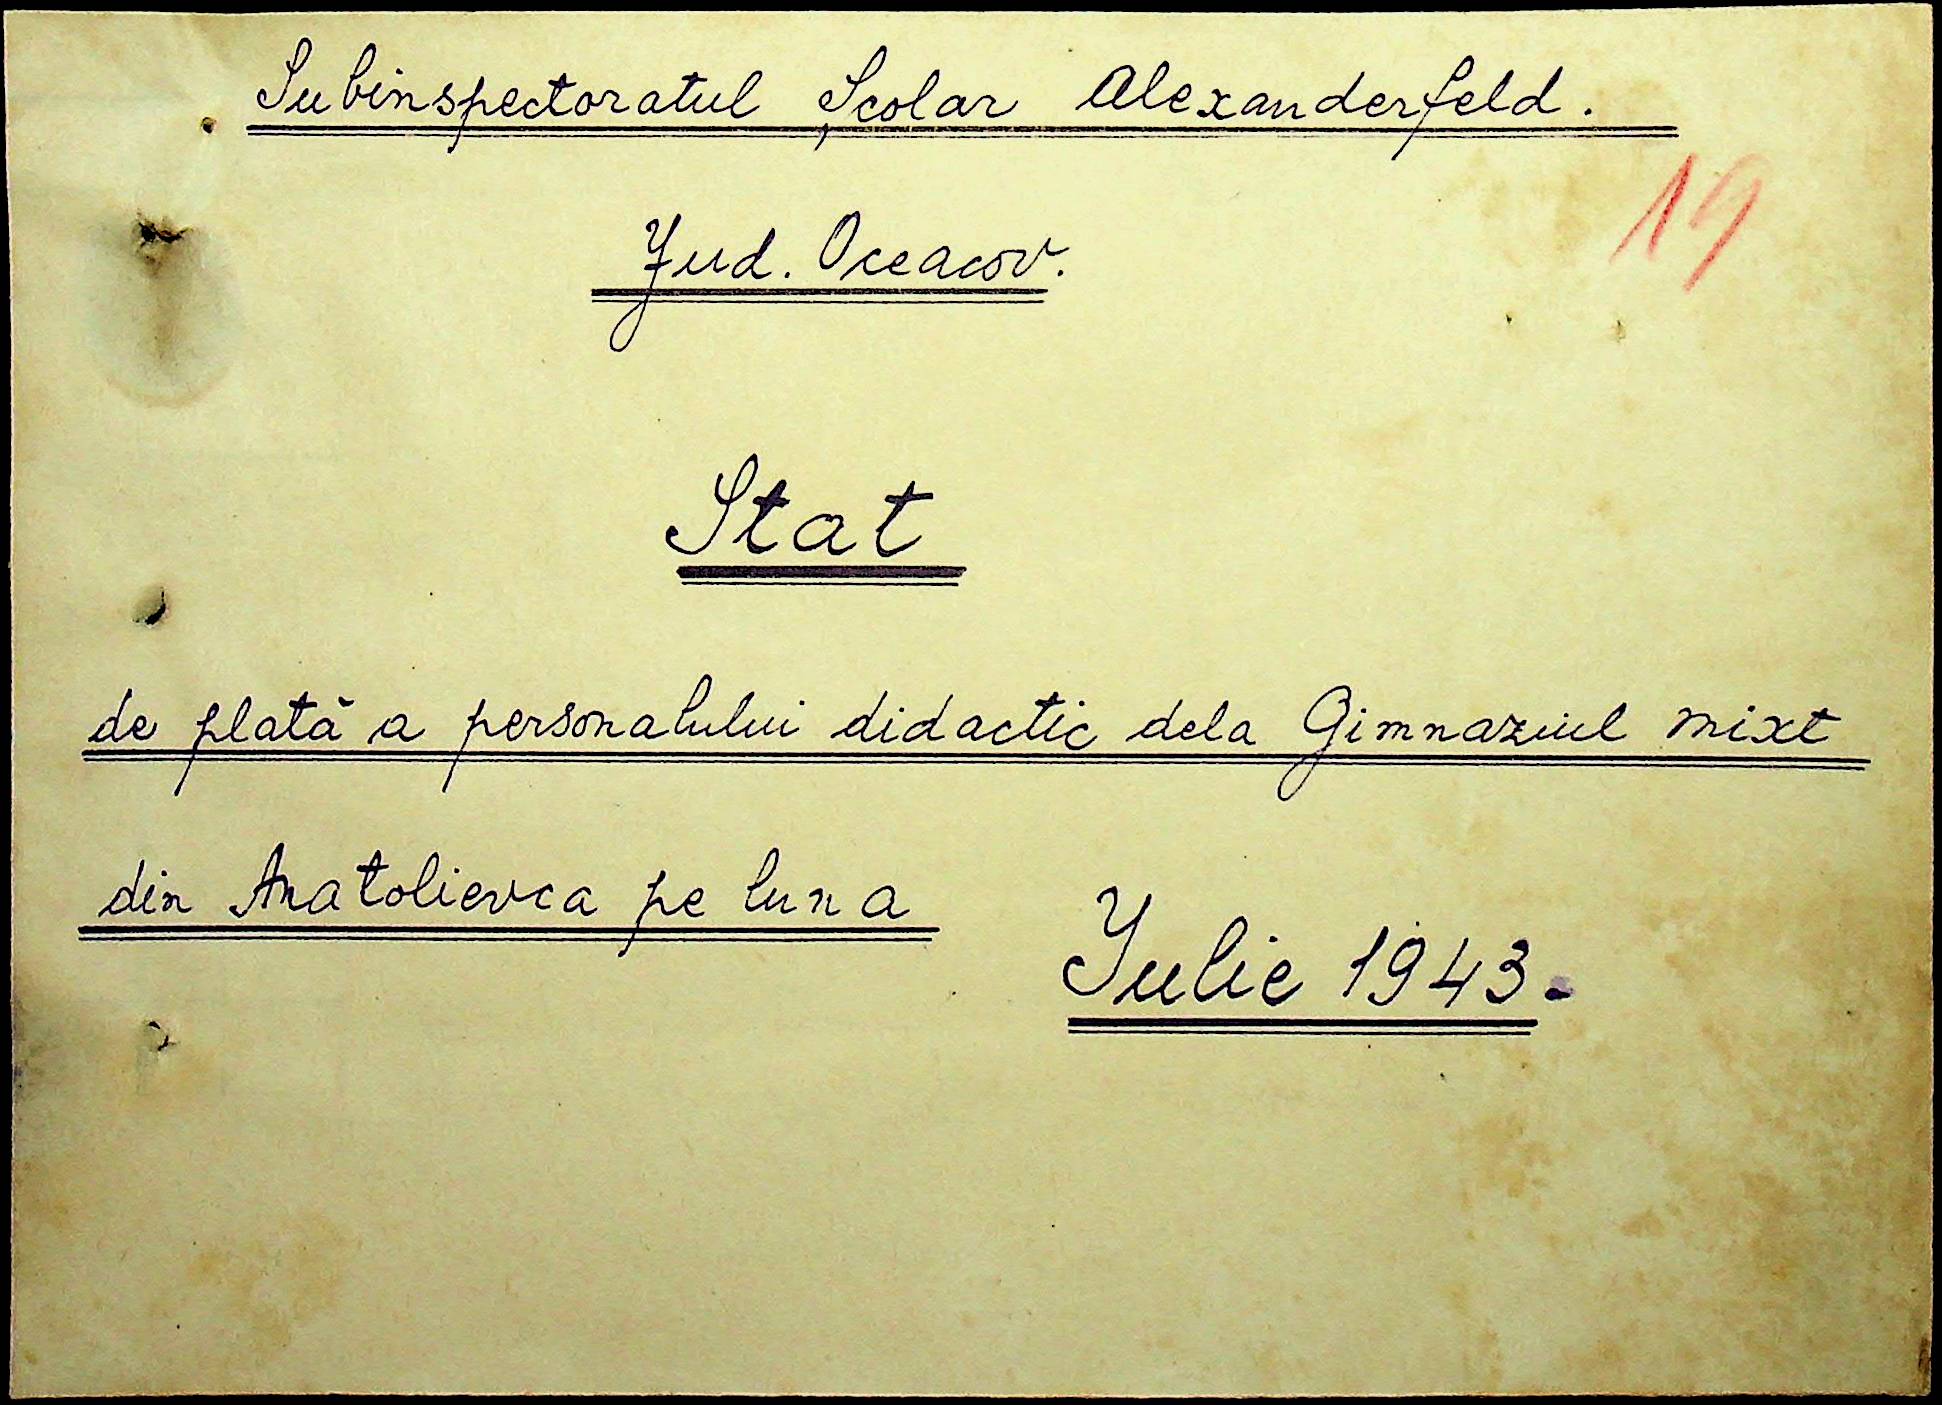 Subinspectoratul Școlar Alexanderfeld.
19
Jud. Oceacov.
Stat
de plată a personalului didactic dela Gimnaziul mixt
din Anatolievca pe luna
Iulie 1943.